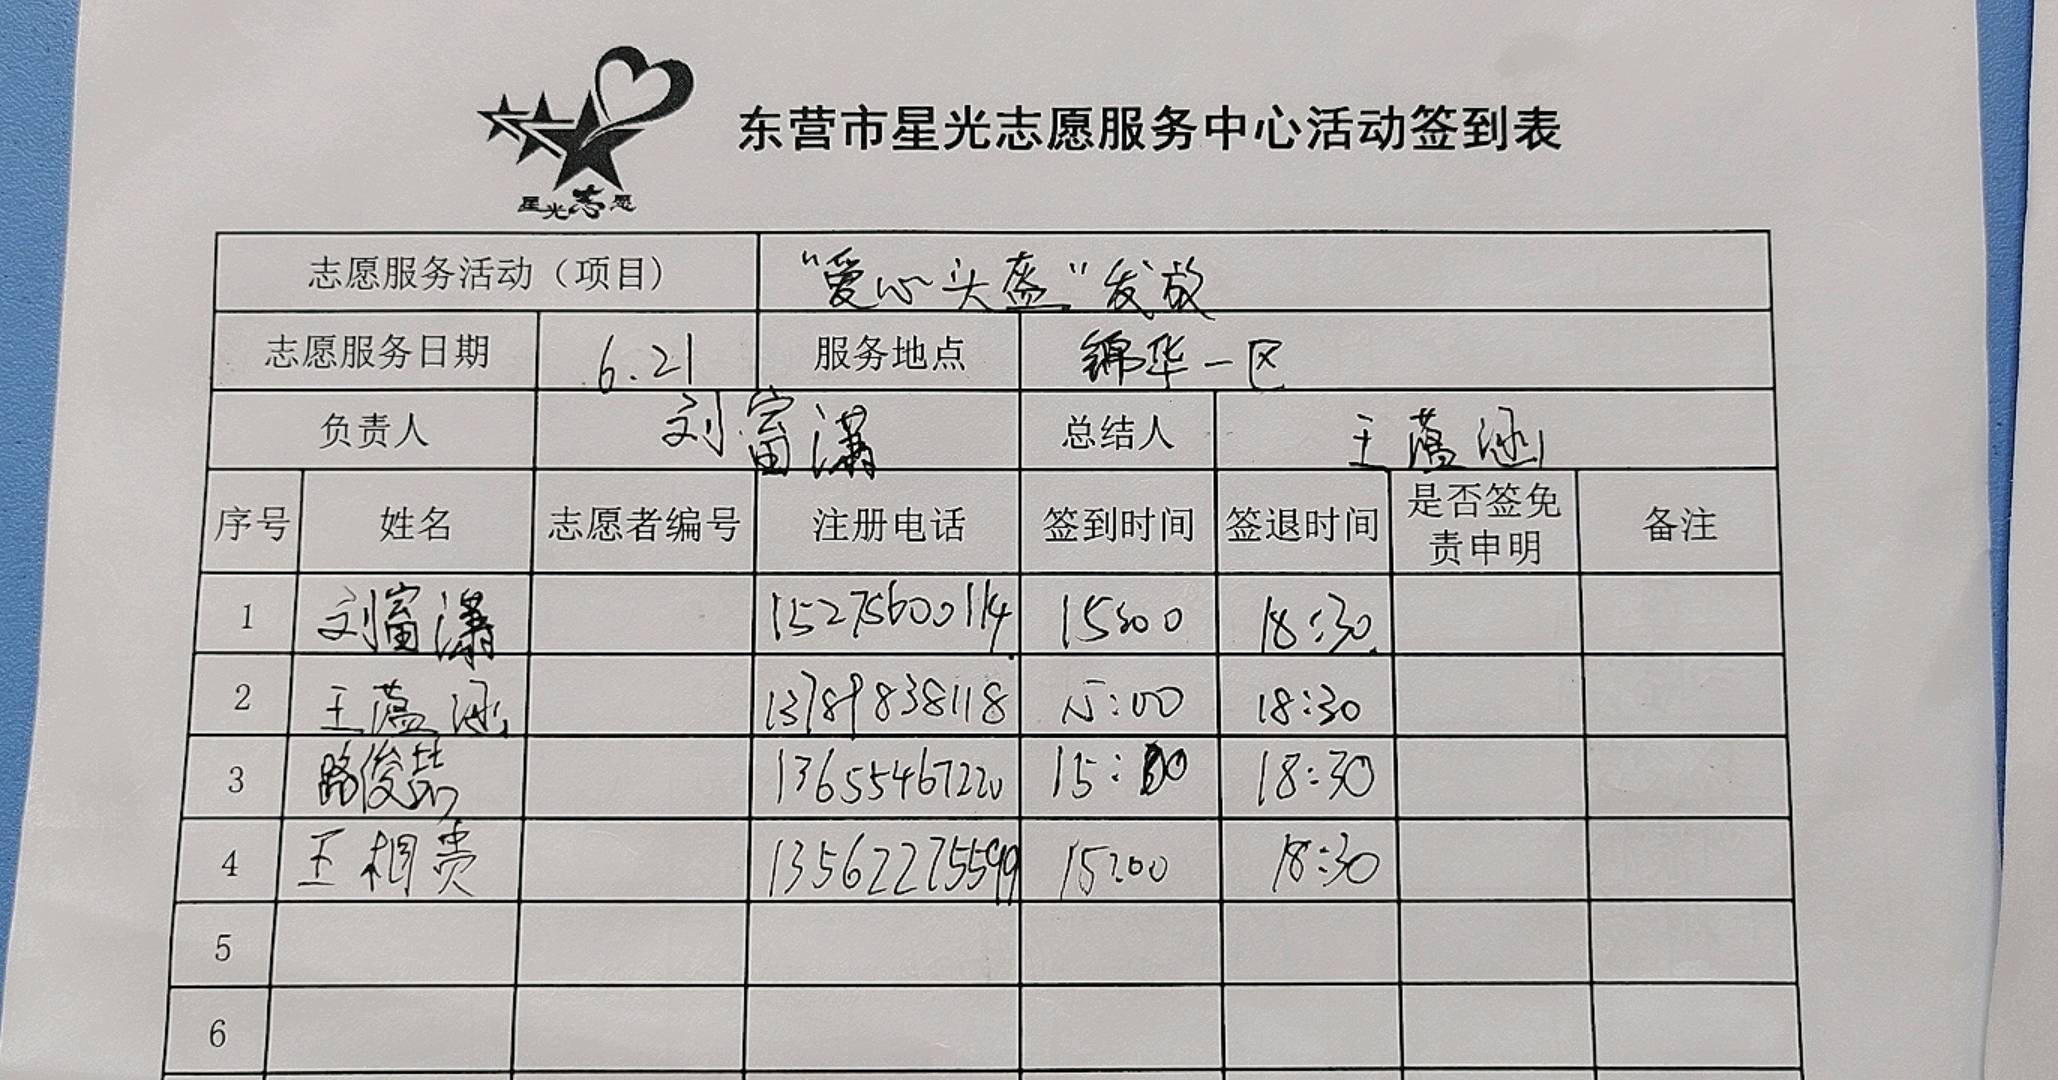 星光志愿
东营市星光志愿服务中心活动签到表
志愿服务活动（项目） “爱心头盔”发放
志愿服务日期 6.21 服务地点 锦华一区
负责人 刘富潇 总结人 王蕴涵
序号 姓名 志愿者编号 注册电话 签到时间 签退时间 是否签免责申明 备注
1 刘富潇 15275600114 15:00 18:30
2 王蕴涵 13789838118 15:00 18:30
3 路俊 13655467220 15:00 18:30
4 王相贵 13562275599 15:00 18:30
5
6